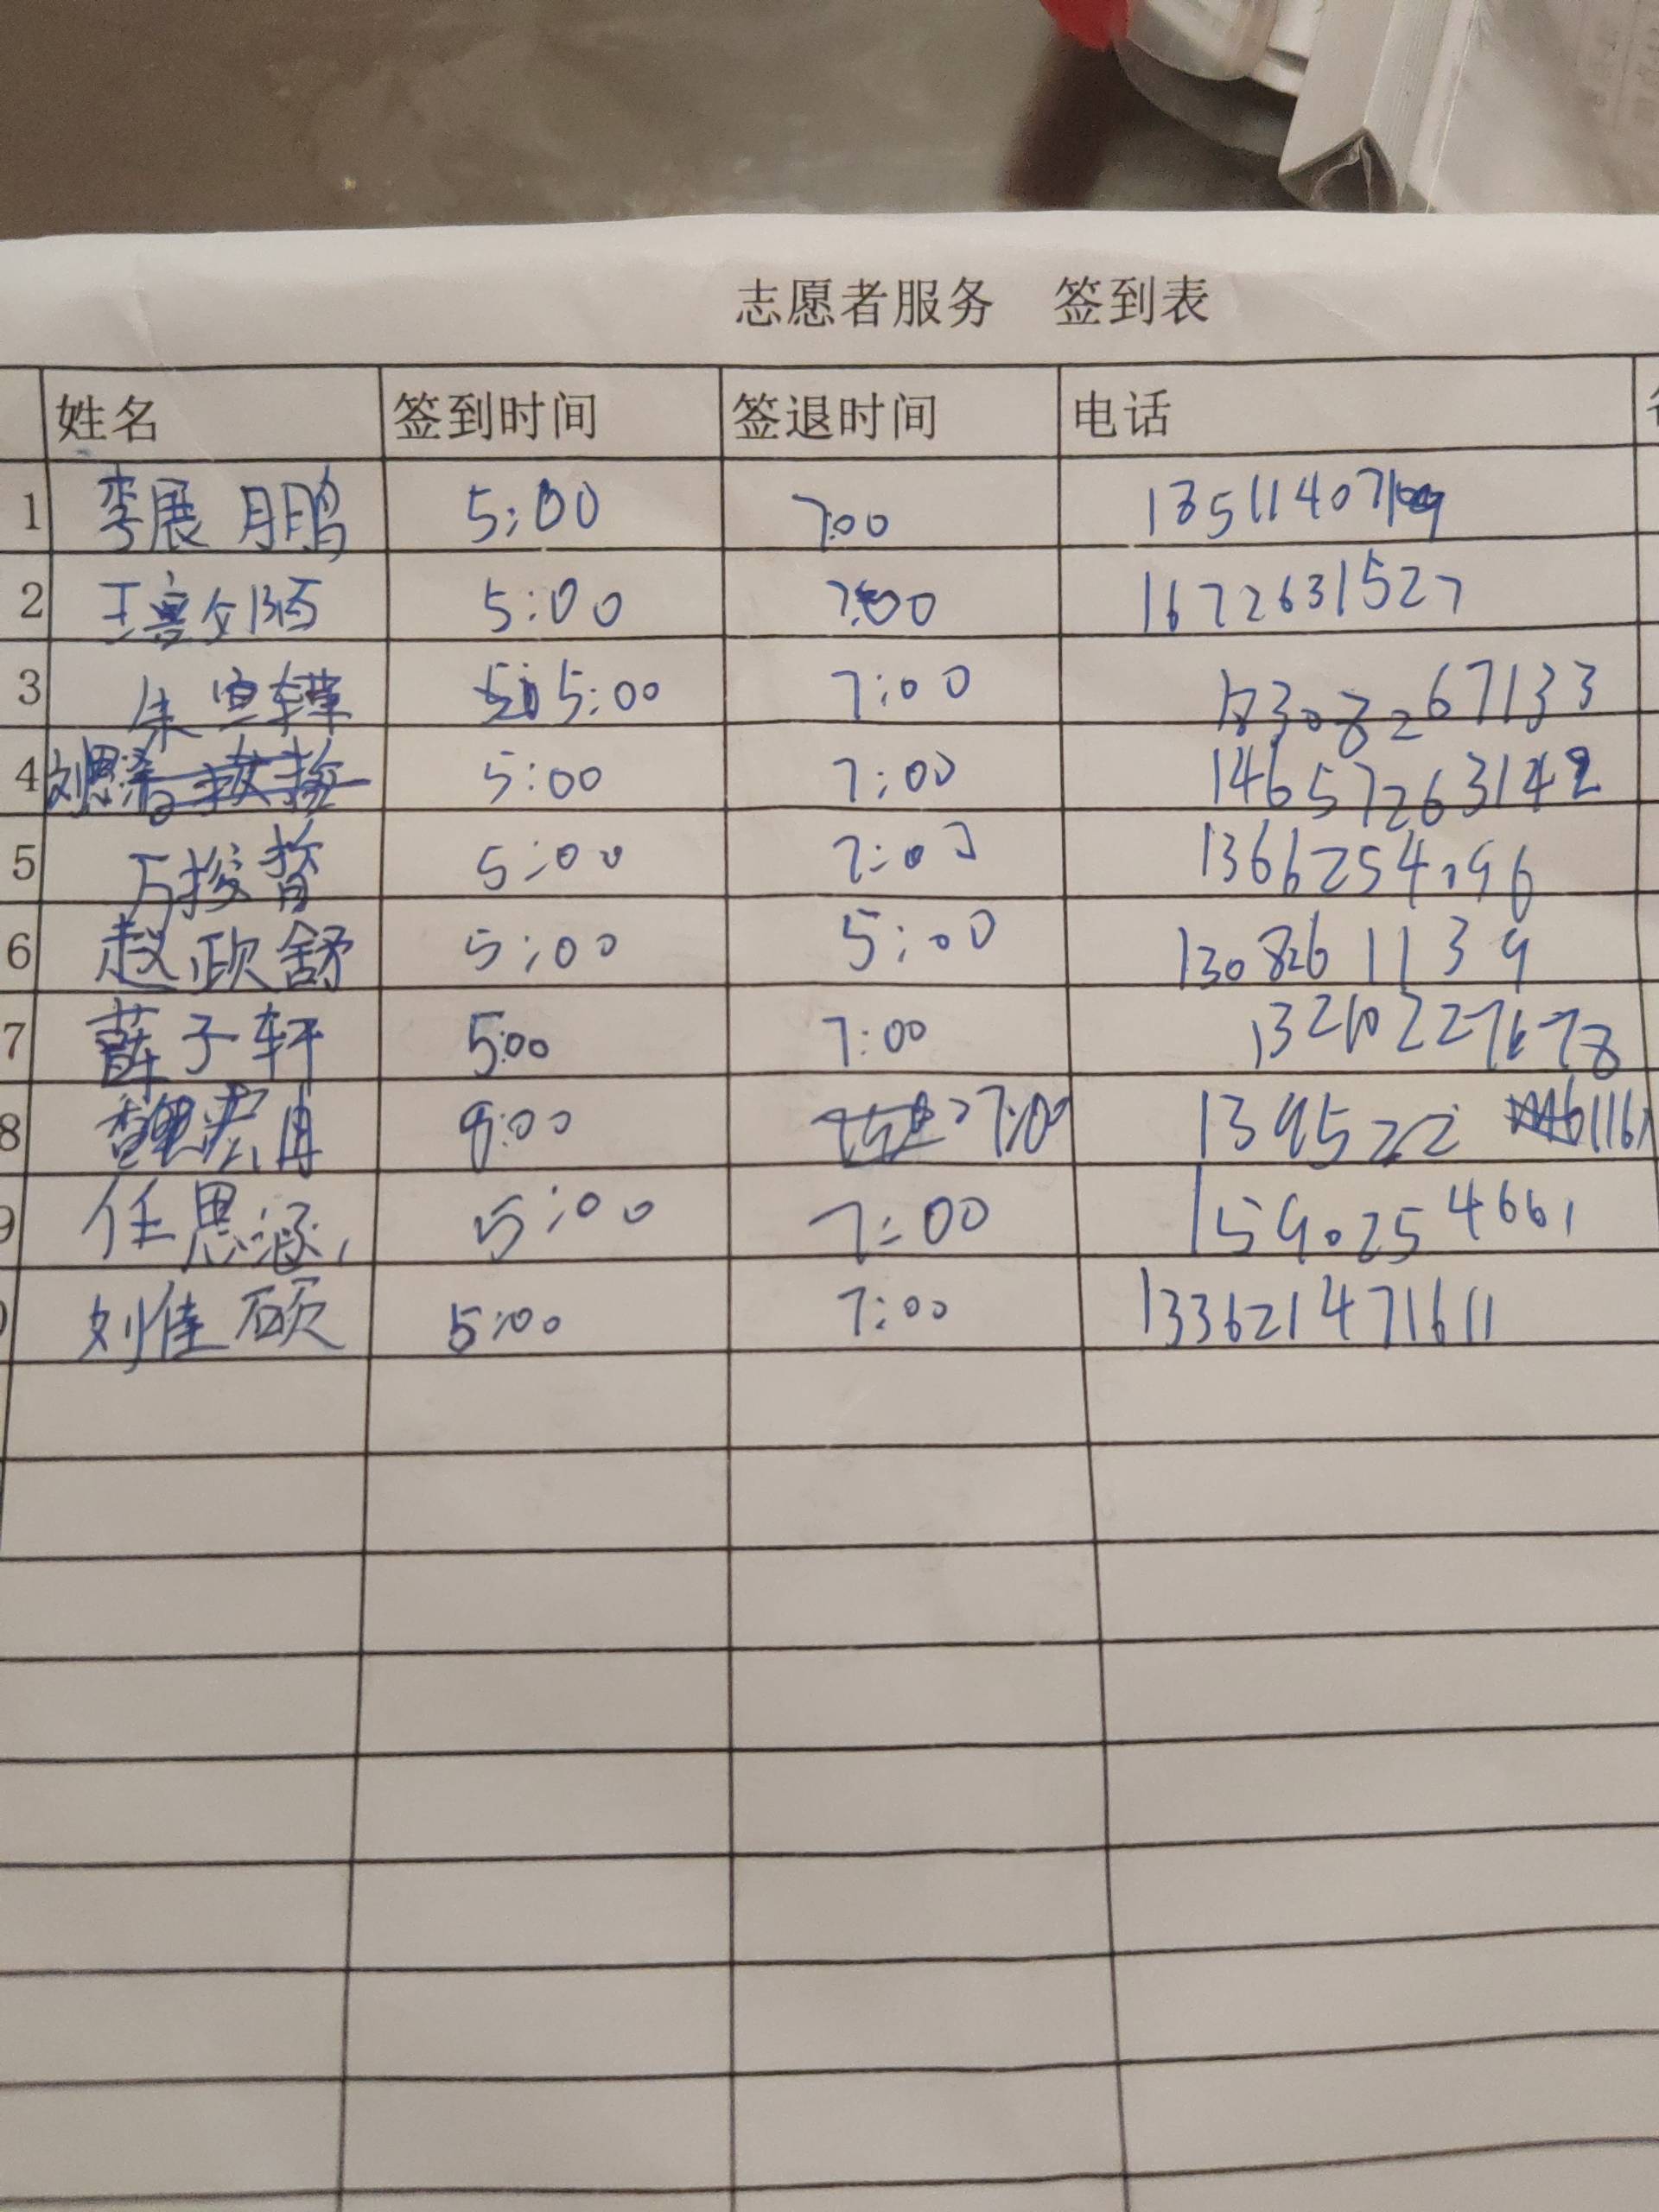 志愿者服务 签到表
姓名 签到时间 签退时间 电话
1 李展鹏 5:00 7:00 135114071
2 5:00 7:00 1672631527
3 朱宣 5:00 7:00 67133
4 刘思涵 5:00 7:00 1465726314
5 万 5:00 7:00 1366254
6 赵欣舒 5:00 5:00 1308261139
7 薛子轩 5:00 7:00
8 魏 7:00 139522
9 任思涵 5:00 7:00 1590254661
刘佳硕 5:00 7:00 133621471611